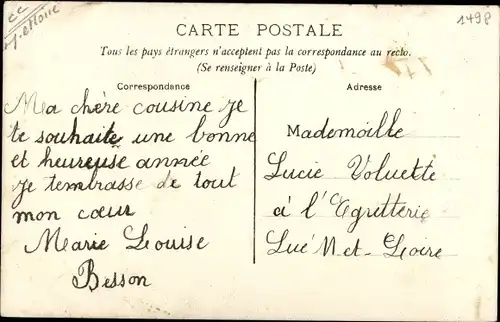 1498
CARTE POSTALE
Tous les pays étrangers n'acceptent pas la correspondance au recto.
(Se renseigner à la Poste)
Correspondance
Adresse
Ma chère cousine je
te souhaite une bonne
et heureuse année
je tembrasse de tout
mon cœur
Marie Louise
Besson
Mademoille
Lucie Voluette
à l'Egretterie
Lué M-et-Loire